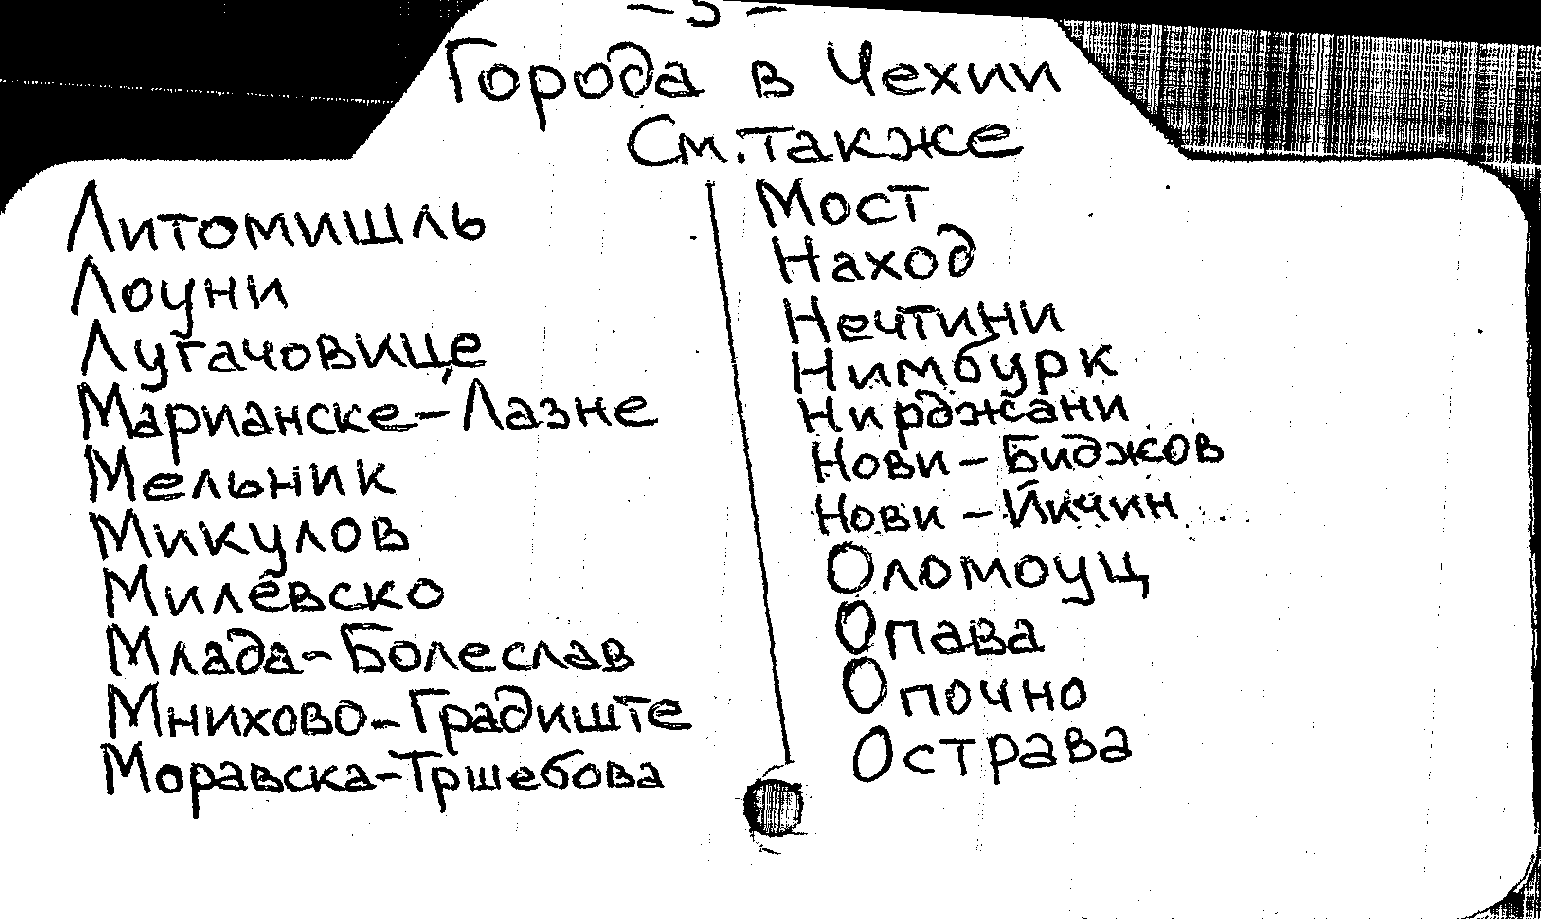 — 3 —
Города в Чехии
См. также
Литомишль
Лоуни
Лугачовице
Марианске-Лазне
Мельник
Микулов
Милевско
Млада-Болеслав
Мнихово-Градиште
Моравска-Тршебова
Мост
Наход
Нечтини
Нимбурк
Нирджани
Нови-Биджов
Нови-Йичин
Оломоуц
Опава
Опочно
Острава